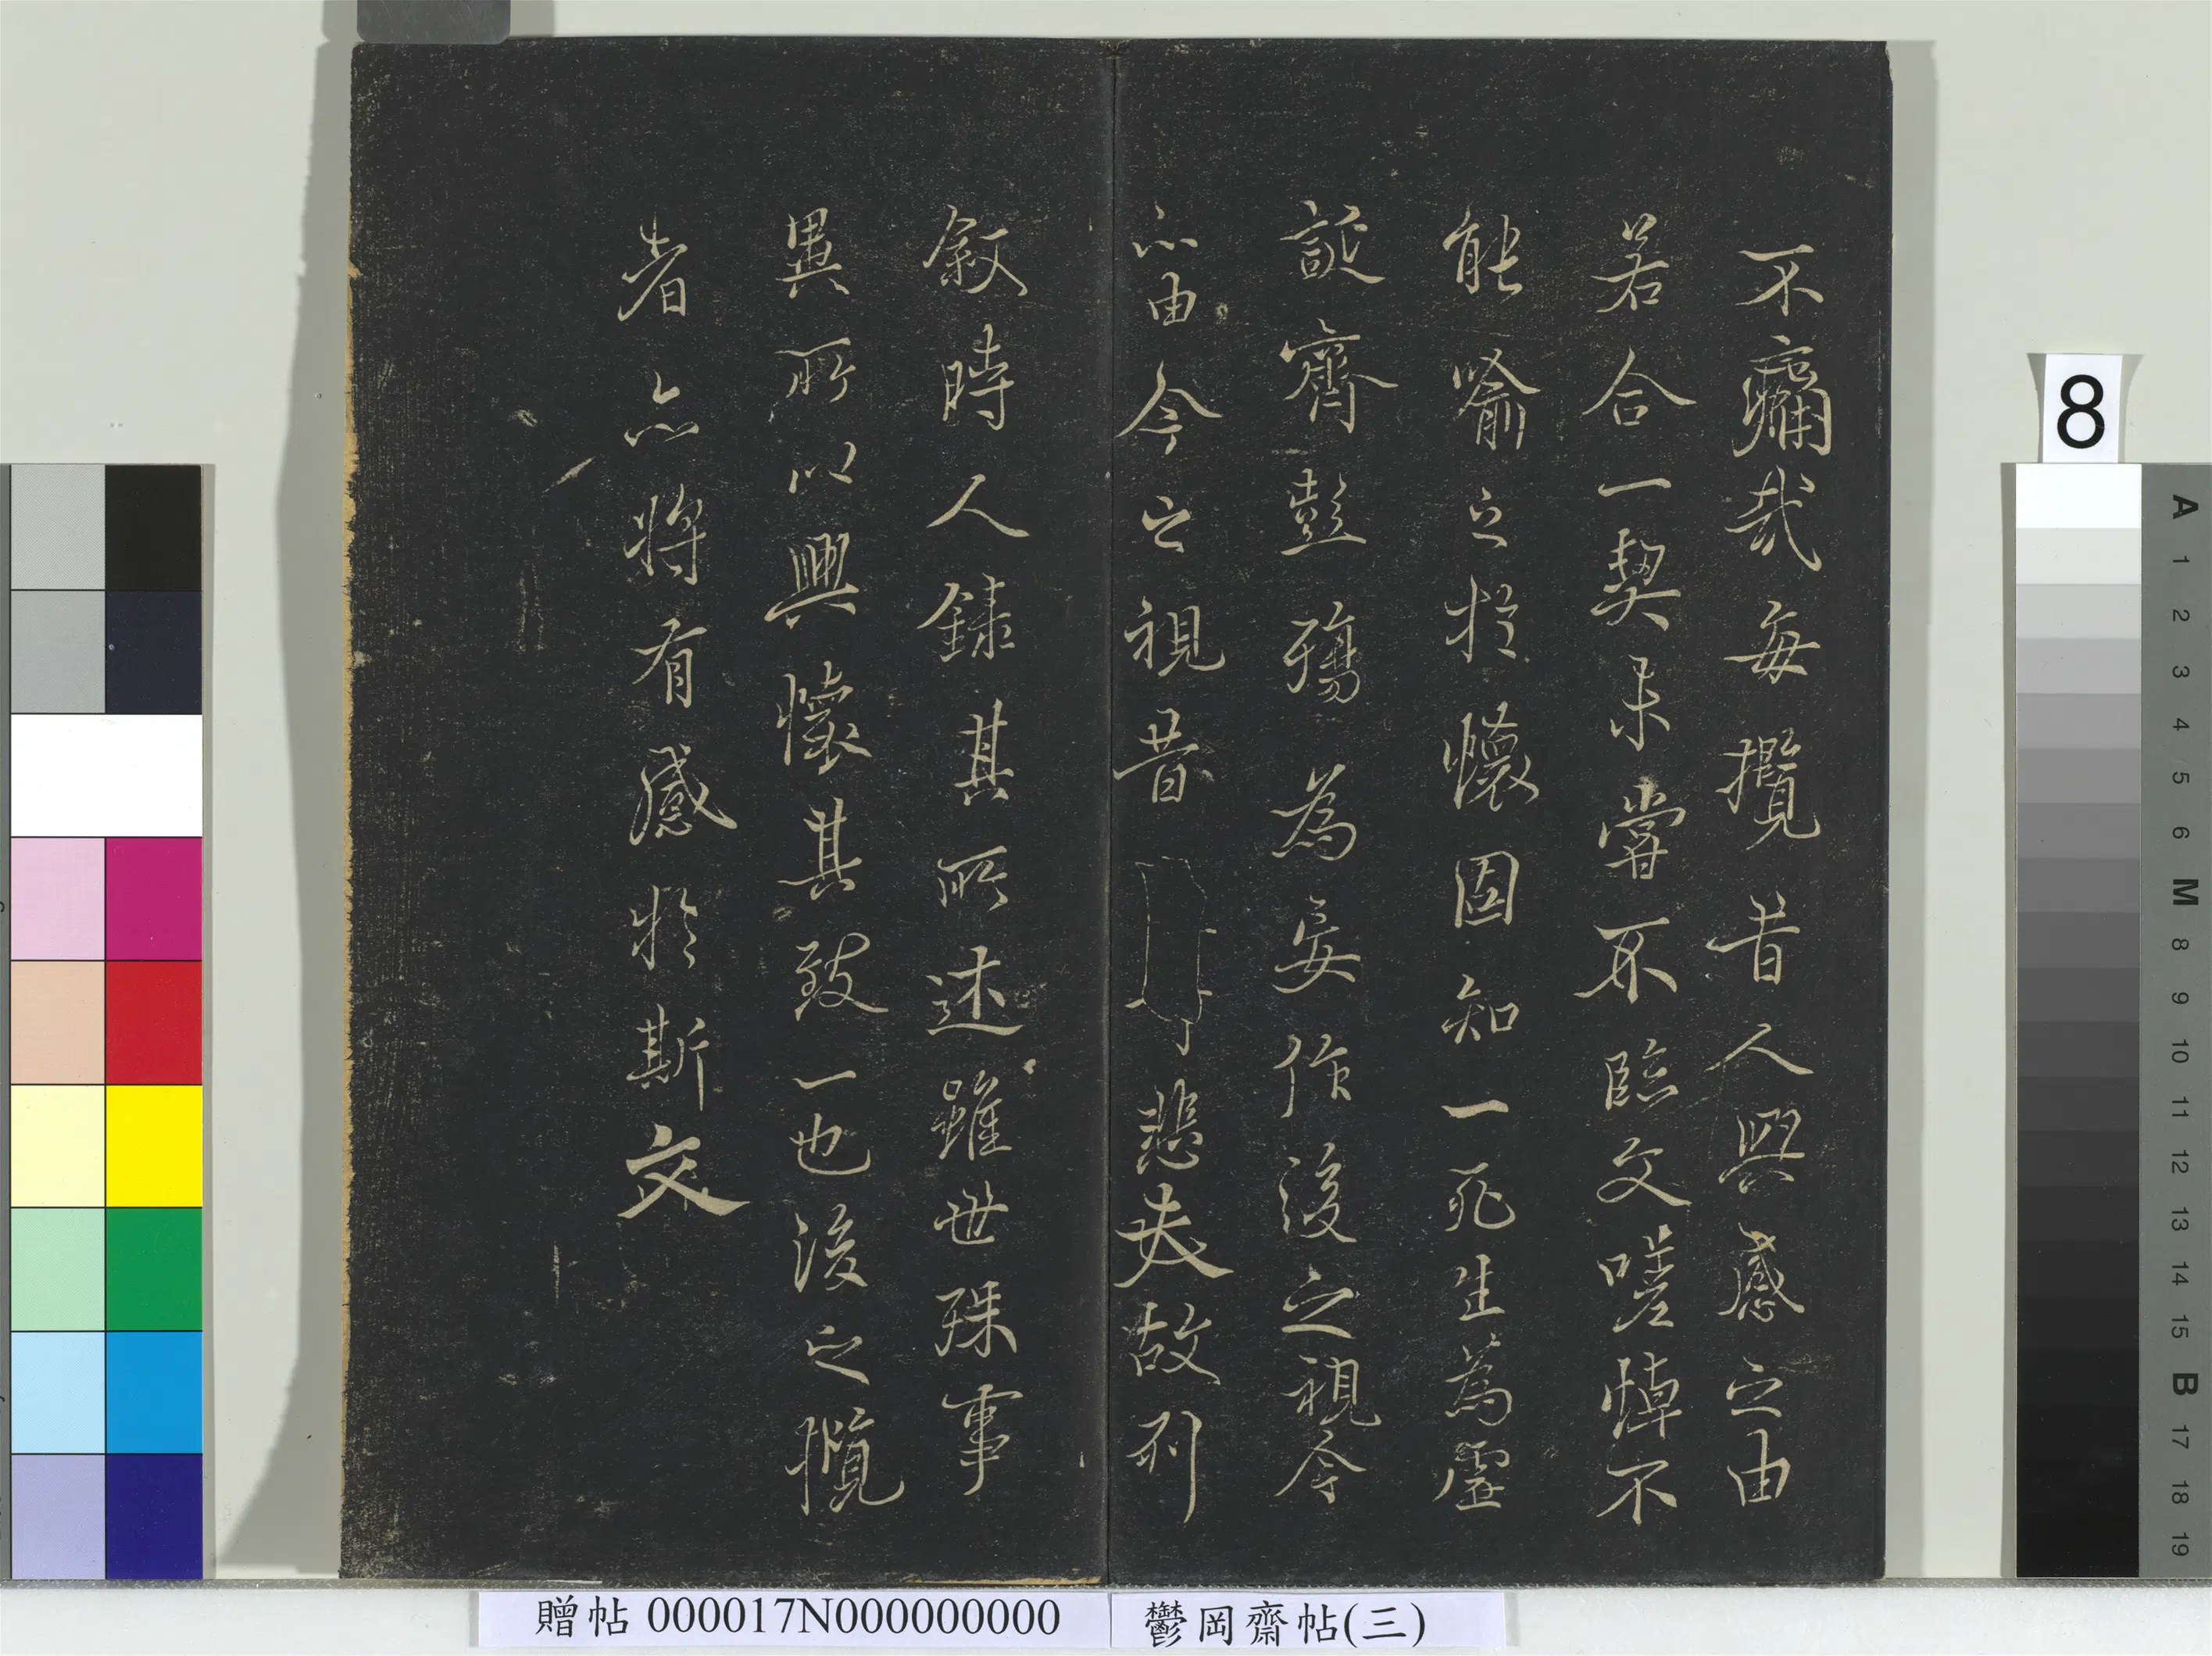 不痛哉每攬昔人興感之由
若合一契未嘗不臨文嗟悼不
能喻之於懷固知一死生為虛
誕齊彭殤為妄作後之視今
亦由今之視昔悲夫故列
敘時人錄其所述雖世殊事
異所以興懷其致一也後之攬
者亦將有感於斯文
8
A
1
2
3
4
5
6
M
8
9
10
11
12
13
14
15
B
17
18
19
贈帖 000017N000000000
鬱岡齋帖(三)